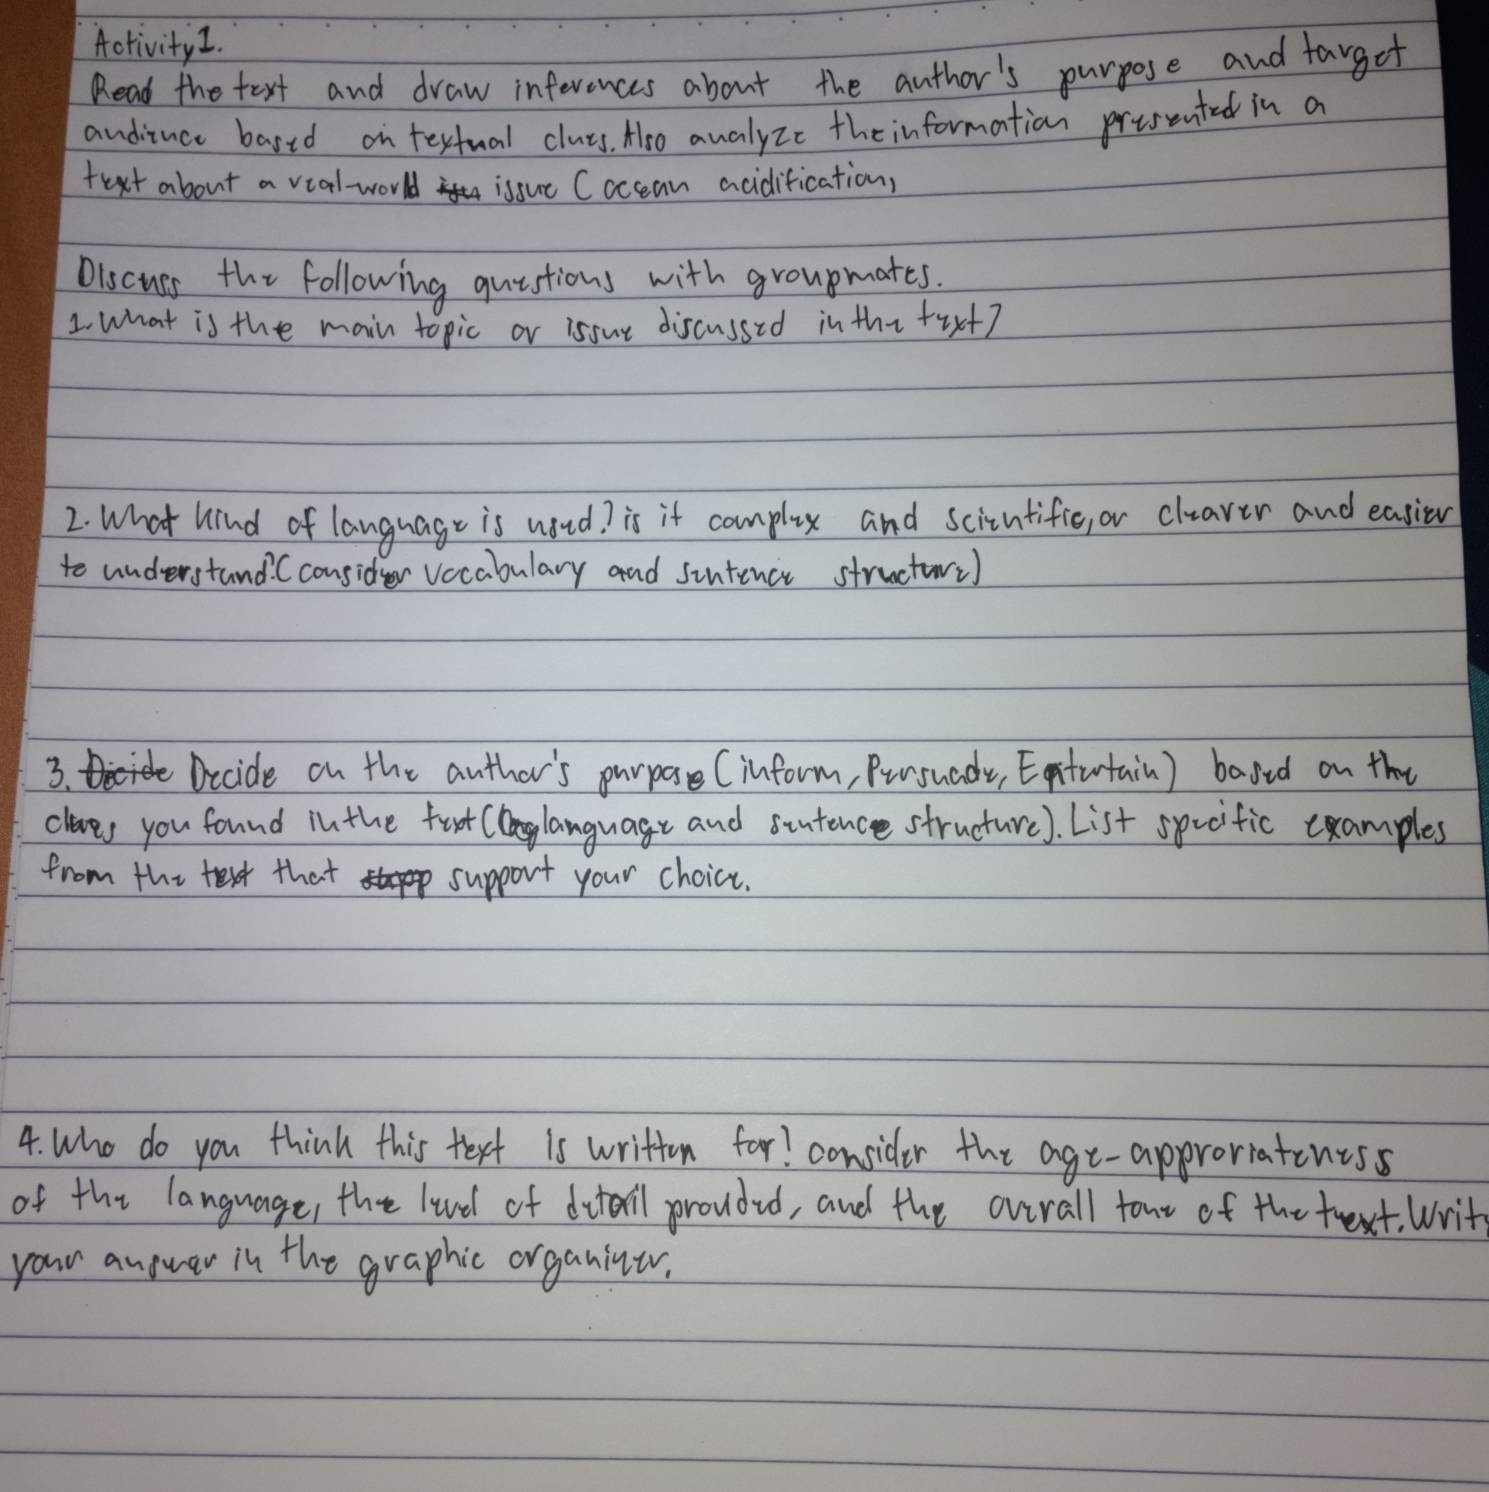 Activity 1.
Read the text and draw inferences about the author's purpose and target
audience based on textual clues. Also analyze the information presented in a
text about a real-world issue (ocean acidification,
Discuss the following questions with groupmates.
1. What is the main topic or issue discussed in the text?
2. What kind of language is used? is it complex and scientific, or clearer and easier
to understand? (consider vocabulary and sentence structure)
3. Decide Decide on the author's purpose (inform, Persuade, Entertain) based on the
clues you found in the text (language and sentence structure). List specific examples
from the text that support your choice.
4. Who do you think this text is written for? consider the age-approriateness
of the language, the level of detail provided, and the overall tone of the text. Write
your answer in the graphic organizer.